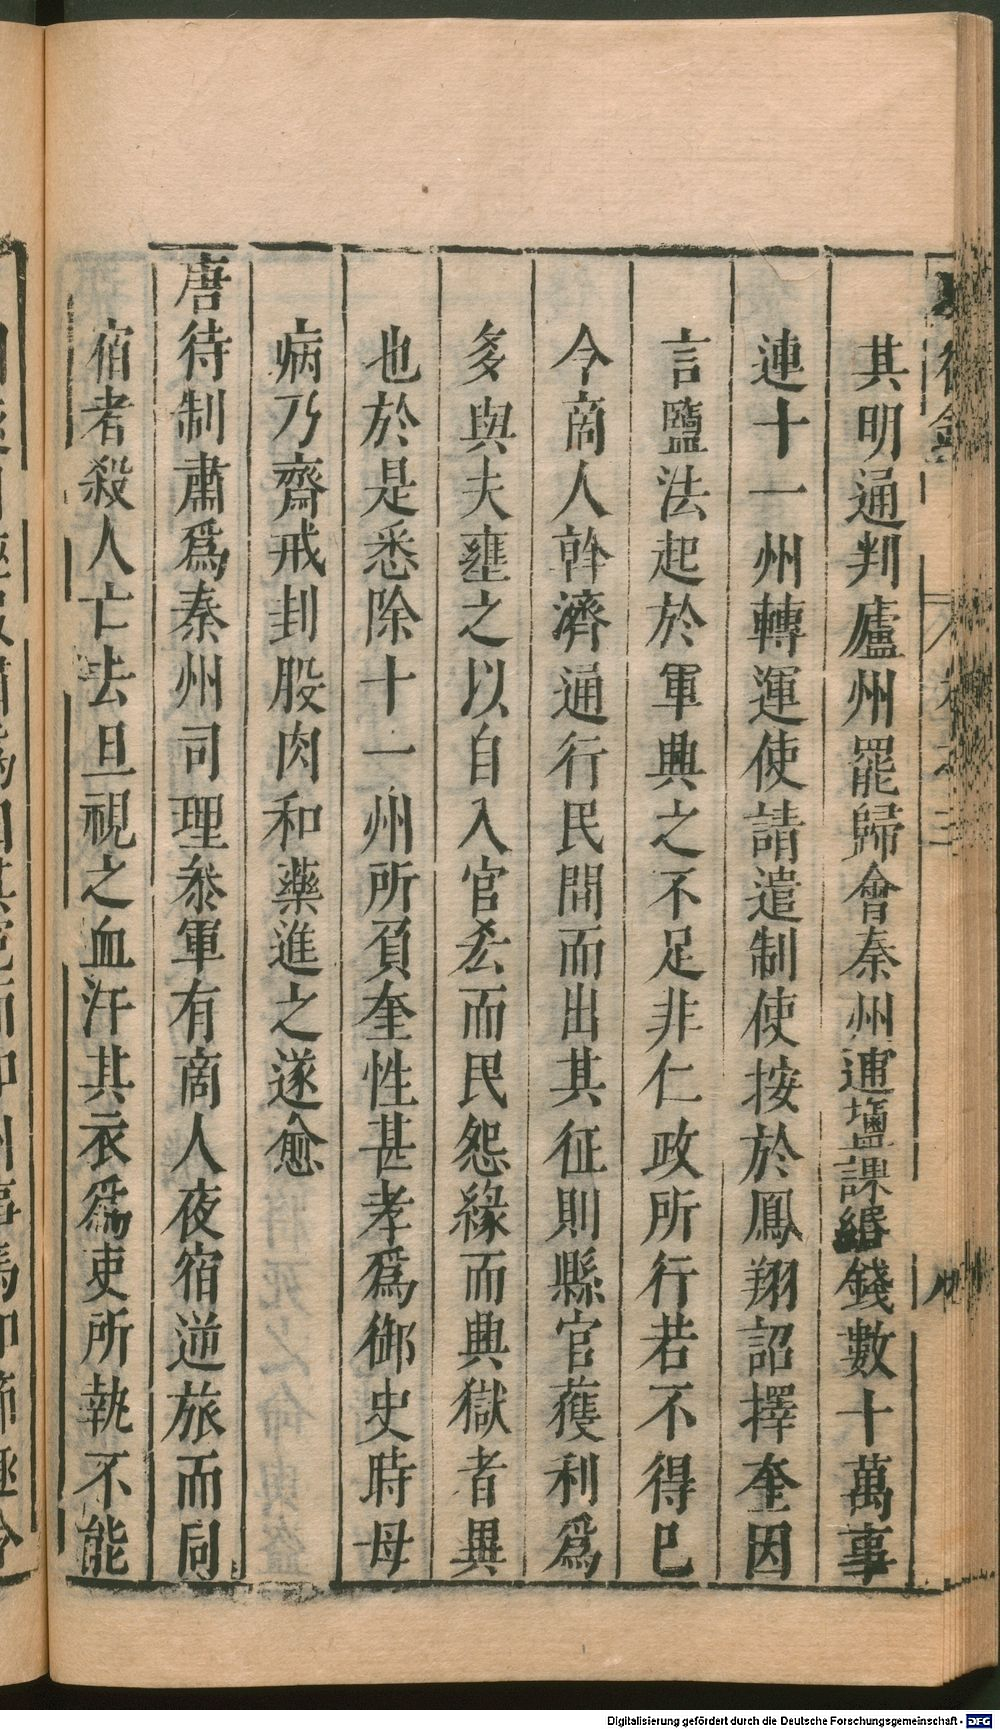 其明通判廬州罷歸會秦州逋鹽課緡錢數十萬事
連十一州轉運使請遣制使按於鳳翔詔擇奎因
言鹽法起於軍興之不足非仁政所行若不得已
令商人斡濟通行民間而出其征則縣官獲利爲
多與夫壅之以自入官殺而民怨緣而興獄者異
也於是悉除十一州所負奎性甚孝爲御史時母
病乃齋戒刲股肉和藥進之遂愈
唐待制肅爲秦州司理叅軍有商人夜宿逆旅而同
宿者殺人亡去旦視之血汙其衣爲吏所執不能
卷之三
Digitalisierung gefördert durch die Deutsche Forschungsgemeinschaft - DFG